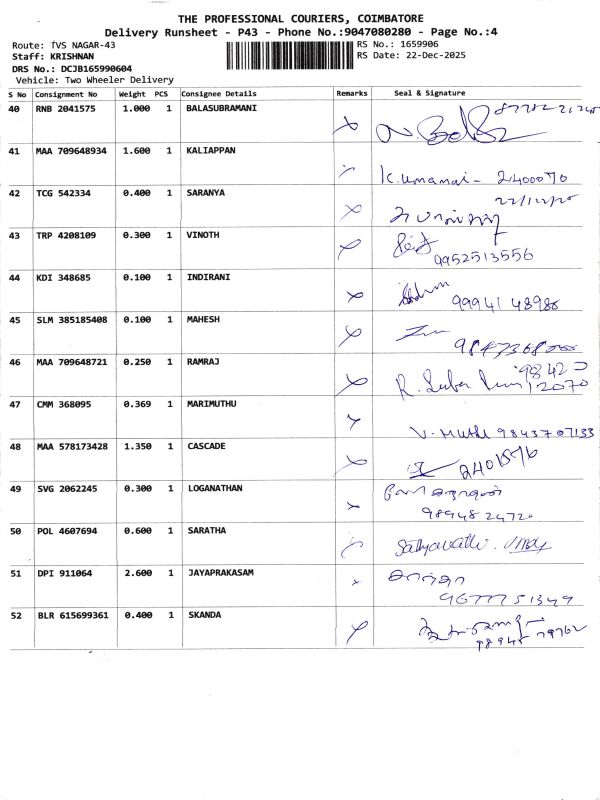 THE PROFESSIONAL COURIERS, COIMBATORE
Delivery Runsheet - P43 - Phone No.:9047080280 - Page No.:4
Route: TVS NAGAR-43
RS No.: 1659906
Staff: KRISHNAN
RS Date: 22-Dec-2025
DRS No.: DCJB165990604
Vehicle: Two Wheeler Delivery
S No Consignment No Weight PCS Consignee Details Remarks Seal & Signature
40 RNB 2041575 1.000 1 BALASUBRAMANI
41 MAA 709648934 1.600 1 KALIAPPAN K.Umamai - 2400070
42 TCG 542334 0.400 1 SARANYA 22/12/25
43 TRP 4208109 0.300 1 VINOTH 9952513556
44 KDI 348685 0.100 1 INDIRANI 9994148986
45 SLM 385185408 0.100 1 MAHESH
46 MAA 709648721 0.250 1 RAMRAJ 98422 12070
47 CMM 368095 0.369 1 MARIMUTHU V. Muthu 9843707133
48 MAA 578173428 1.350 1 CASCADE 2401576
49 SVG 2062245 0.300 1 LOGANATHAN லோகநாதன்
9894824720
50 POL 4607694 0.600 1 SARATHA Sathyavathi.
51 DPI 911064 2.600 1 JAYAPRAKASAM சாரதா
9677751349
52 BLR 615699361 0.400 1 SKANDA
98945 79762